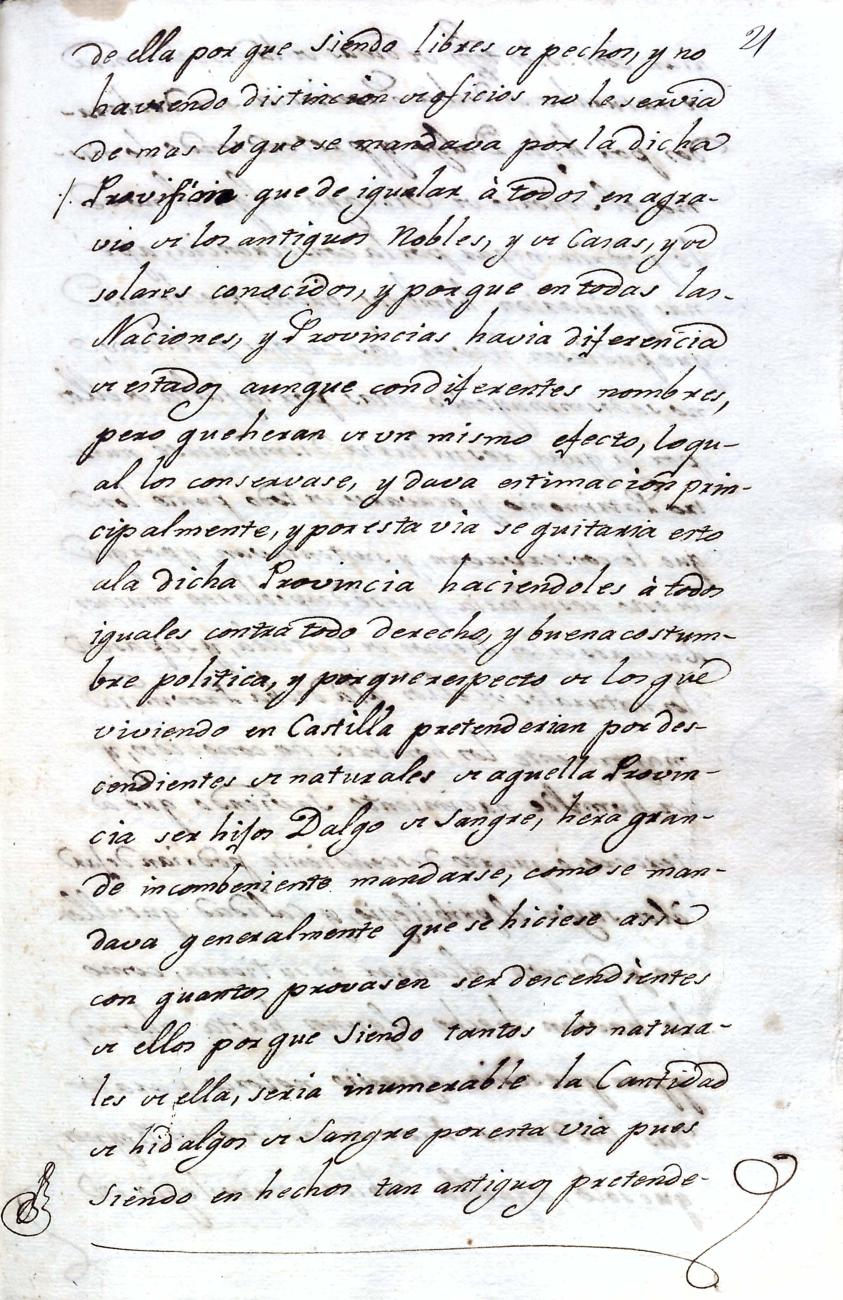 21
de ella por que siendo libres de pechos, y no
haviendo distincion de oficios no le servia
de mas lo que se mandava por la dicha
Provision que de igualar à todos en agra-
vio de los antiguos Nobles, y de Casas, y de
solares conocidos, y por que en todas las
Naciones, y Provincias havia diferencia
de estados aunque con diferentes nombres,
pero que heran de un mismo efecto, lo qu-
al los conservase, y dava estimacion prin-
cipalmente, y por esta via se quitaria esto
ala dicha Provincia haciendoles à todos
iguales contra todo derecho, y buena costum-
bre politica, y porque respecto de los que
viviendo en Castilla pretenderian por des-
cendientes de naturales de aquella Provin-
cia ser hijos Dalgo de Sangre, hera gran-
de incombeniente mandarse, como se man-
dava generalmente que se hiciese asi
con quantos provasen ser descendientes
de ellos por que Siendo tantos los natura-
les de ella, seria inumerable la Cantidad
de hidalgos de Sangre por esta via pues
siendo en hechos tan antiguos pretende-